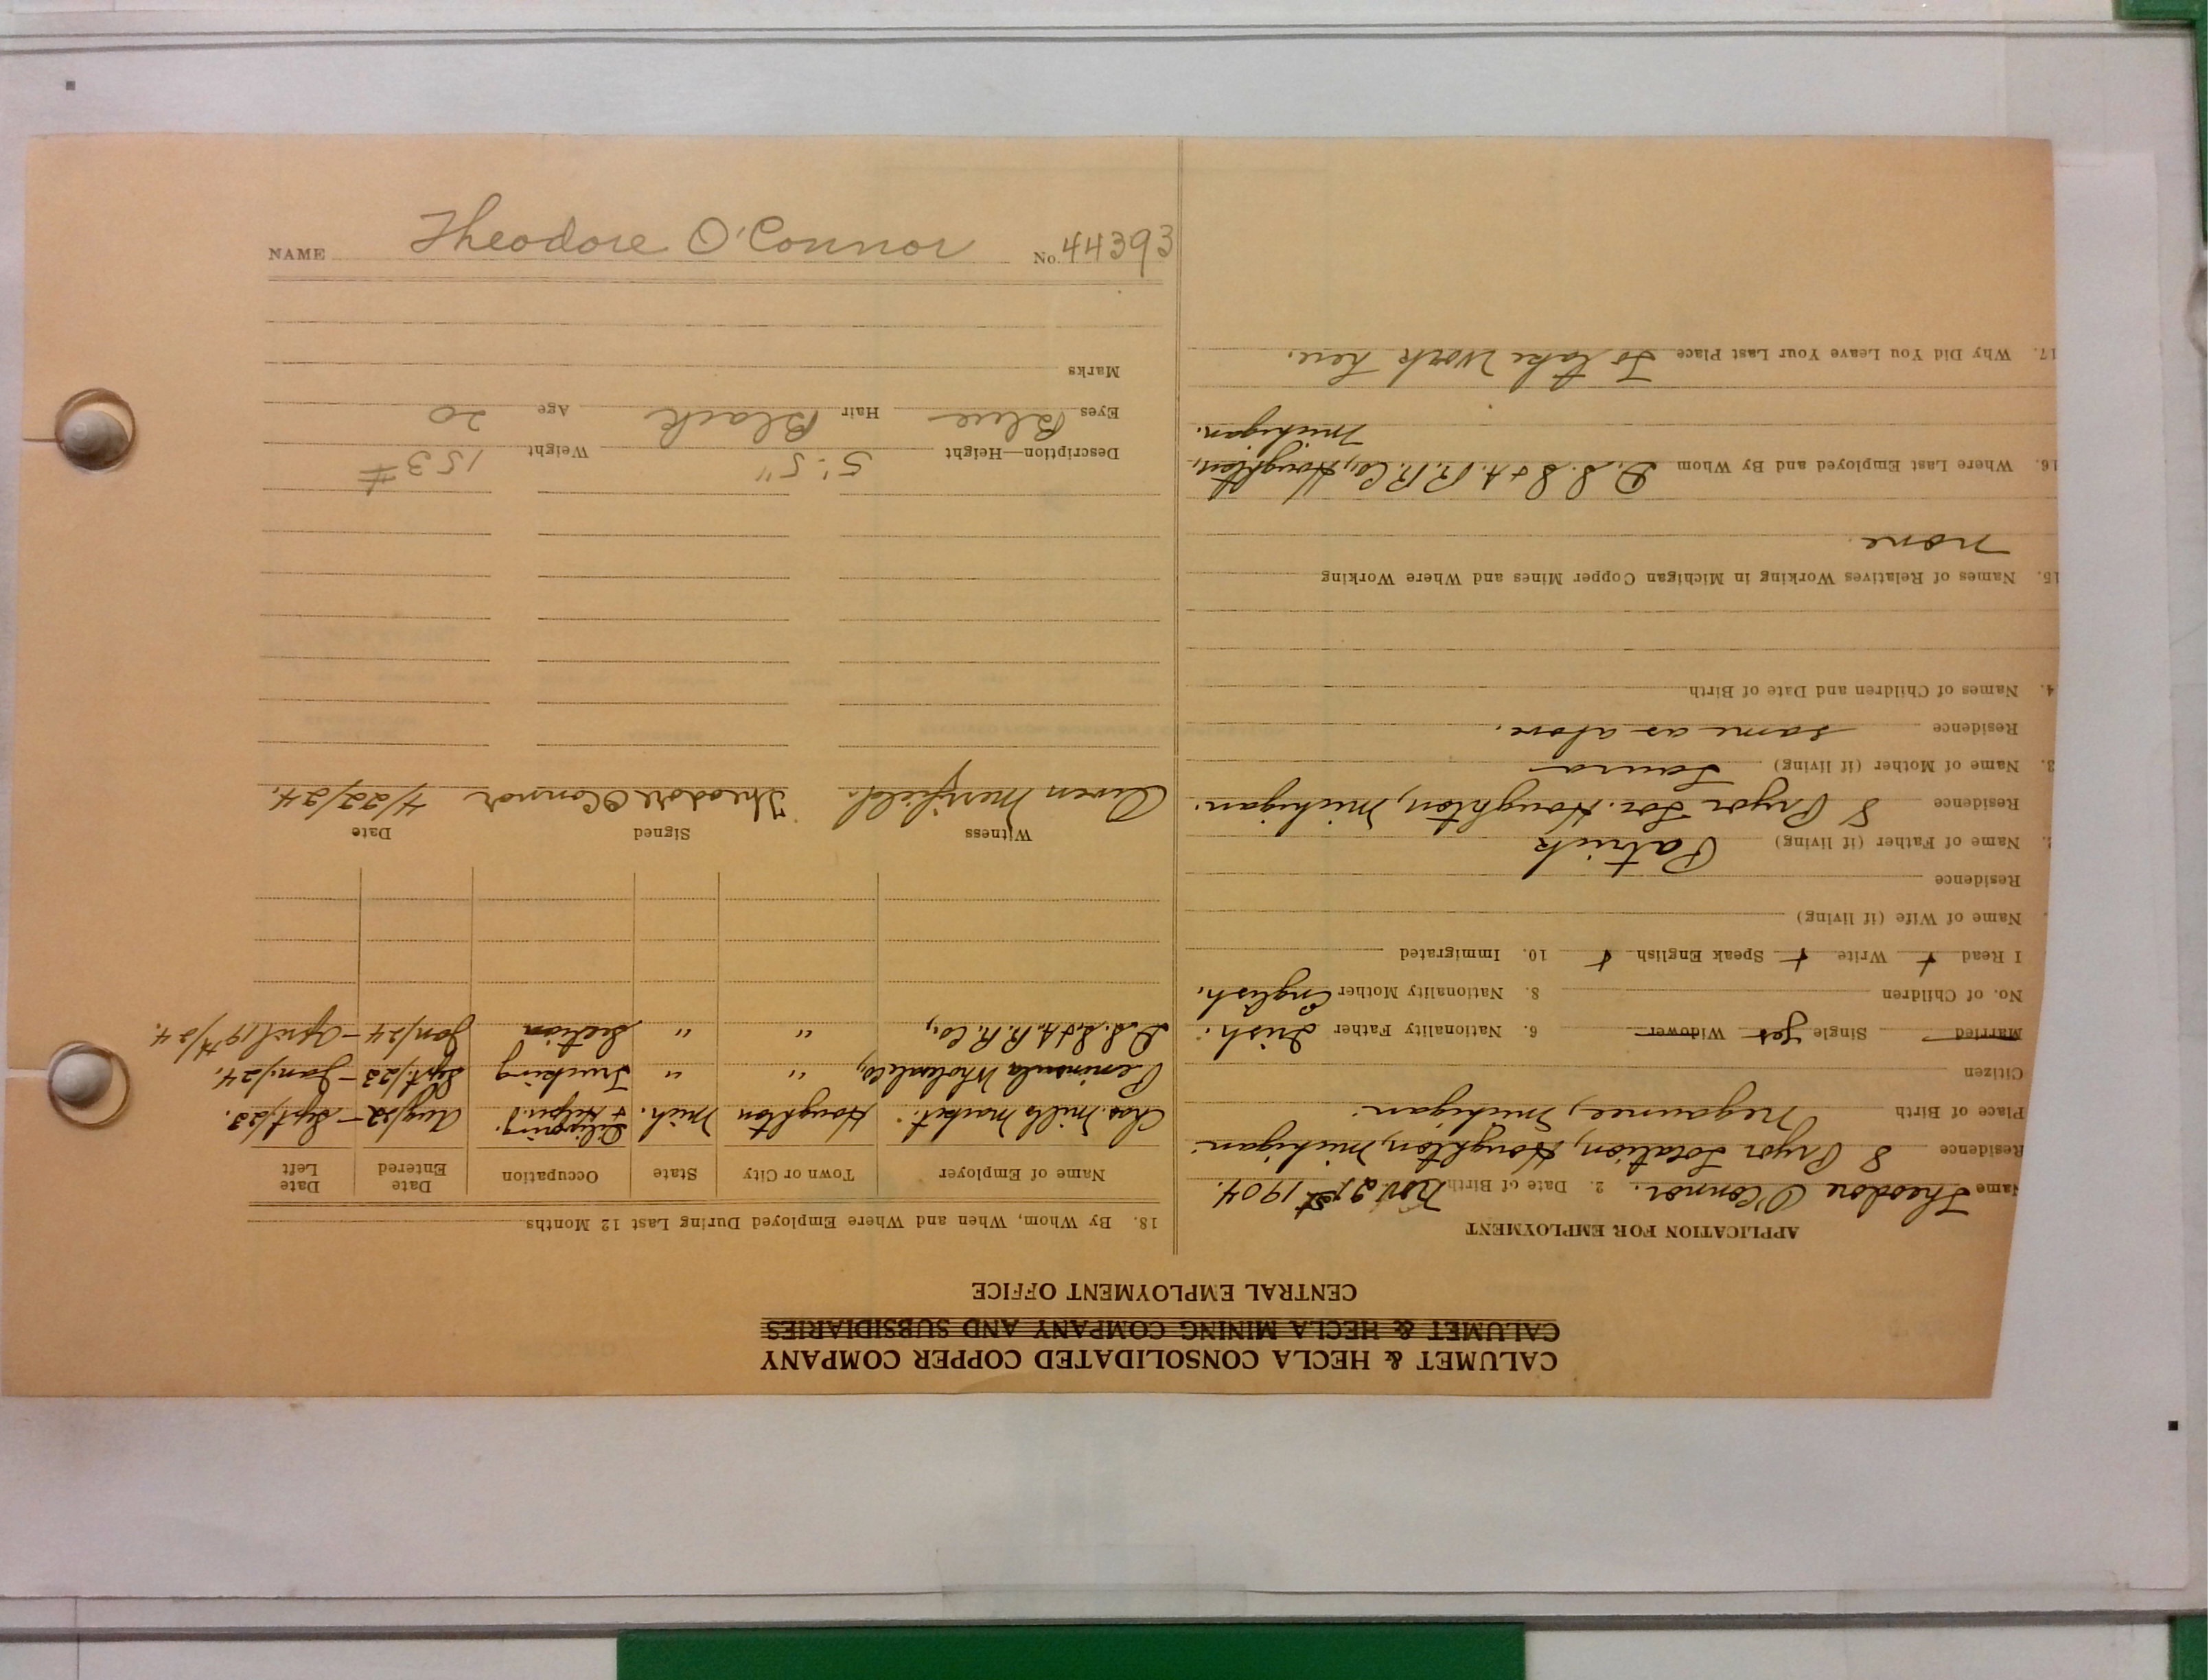 CALUMET & HECLA CONSOLIDATED COPPER COMPANY
CALUMET & HECLA MINING COMPANY AND SUBSIDIARIES
CENTRAL EMPLOYMENT OFFICE
APPLICATION FOR EMPLOYMENT
Name Theodore O'Connor. 2. Date of Birth Nov 21st 1904.
Residence 8 Pryor Location, Houghton, Michigan.
Place of Birth Negaunee, Michigan.
Citizen
Married Single yes Widower 6. Nationality Father Irish.
No. of Children 8. Nationality Mother English.
I Read + Write + Speak English + 10. Immigrated
Name of Wife (if living)
Residence
Name of Father (if living) Patrick
Residence 8 Pryor Loc. Houghton, Michigan.
3. Name of Mother (if living) Laura
Residence same as above.
4. Names of Children and Date of Birth
15. Names of Relatives Working in Michigan Copper Mines and Where Working
none.
16. Where Last Employed and By Whom D.S.S. & A. R.R. Co, Houghton,
Michigan.
17. Why Did You Leave Your Last Place To take work here.
18. By Whom, When and Where Employed During Last 12 Months
Name of Employer Town or City State Occupation Date Entered Date Left
Chas. Mills Market. Houghton Mich. Delivering & Helper. Aug/22 - Sept/23.
Peninsula Wholesale Co, " " Trucking Sept/23 - Jan/24.
D.S.S. & A. R.R. Co, " " Section Jan/24 - April 19th/24.
Witness Signed Date
Owen Merrifield. Theodore O'Connor 4/22/24.
Description—Height 5'. 5" Weight 153#
Eyes Blue Hair Black Age 20
Marks
NAME Theodore O'Connor No. 44393